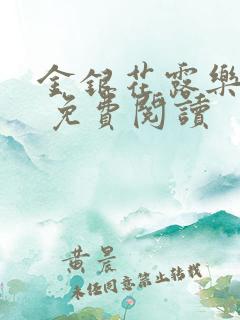 金銀花露樂
免費閱讀
黃晨
未任同意禁止转载